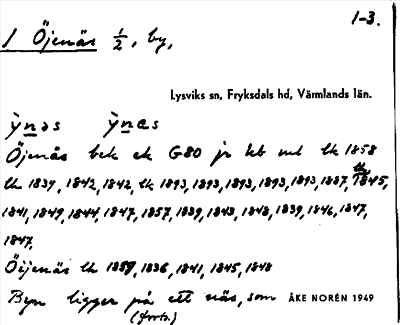 1-3.
1 Öjenäs ½, by,
Lysviks sn, Fryksdals hd, Värmlands län.
ỳnəs ỳnɛs
Öjenäs bek ek G80 jr kb ml lk 1858
lk 1839, 1842, 1842, lk 1893, 1893, 1893, 1893, 1893, 1887, lk 1845,
1841, 1849, 1844, 1847, 1857, 1839, 1843, 1848, 1839, 1846, 1847,
1847,
Öijenäs lk 1859, 1836, 1841, 1845, 1848
Byn ligger på ett näs, som ÅKE NORÉN 1949
(forts.)